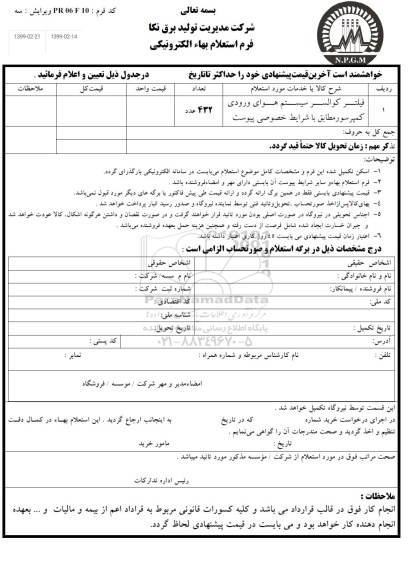 بسمه تعالی
کد فرم : PR 06 F 10 ویرایش : سه
شرکت مدیریت تولید برق نکا
1399-02-21
1399-02-14
فرم استعلام بهاء الکترونیکی
N.P.G.M
خواهشمند است آخرین قیمت پیشنهادی خود را حداکثر تا تاریخ درجدول ذیل تعیین و اعلام فرمائید .
ردیف شرح کالا یا خدمات مورد استعلام تعداد قیمت واحد قیمت کل ملاحظات
۱ فیلتر کوالسر سیستم هوای ورودی کمپرسور مطابق با شرایط خصوصی پیوست ۴۳۲ عدد
جمع کل به حروف:
تذکر مهم : زمان تحویل کالا حتماً قید گردد.
توضیحات:
۱- اسکن تکمیل شده این فرم و مشخصات کامل موضوع استعلام می‌بایست در سامانه الکترونیکی بارگذاری گردد.
۲- فرم استعلام بهاء و سایر شرایط پیوست آن بایستی دارای مهر و امضاء فروشنده باشد .
۳- قیمت پیشنهادی بایستی فقط در همین برگ ارائه گردد و ارائه قیمت طی پیش فاکتور یا برگه های دیگر مورد قبول نمی‌باشد.
۴- بهای کالا پس از اخذ صورتحساب ،تحویل و تائید فنی توسط نماینده نیروگاه و صدور رسید انبار پرداخت خواهد شد .
۵- اجناس تحویلی در نیروگاه در صورت اصلی بودن مورد تائید قرار خواهند گرفت و در صورت نقصان و داشتن هرگونه اشکال، کالا عودت خواهد شد
و جبران خسارت ایجاد شده شامل فرصت از دست رفته و همچنین هزینه حمل بعهده فروشنده می‌باشد .
۶- اعتبار زمان قیمت پیشنهادی می بایست ۴۵ روز کاری اعتبار داشته باشد.
درج مشخصات ذیل در برگه استعلام و صورتحساب الزامی است :
اشخاص حقیقی اشخاص حقوقی
نام و نام خانوادگی : نام موسسه/ شرکت :
نام فروشنده / پیمانکار: شماره ثبت شرکت :
کد ملی: کد اقتصادی:
شناسه ملی:
تاریخ تکمیل : تاریخ تحویل:
آدرس: کد پستی :
تلفن : نام کارشناس مربوطه و شماره همراه : نمابر :
ParsNamadData
پایگاه اطلاع رسانی مناقصه و مزایده
۰۲۱-۸۸۳۴۹۶۷۰-۵
امضاء مدیر و مهر شرکت / موسسه / فروشگاه
این قسمت توسط نیروگاه تکمیل خواهد شد .
در اجرای درخواست خرید شماره که در تاریخ به اینجانب ارجاع گردید . این استعلام بهاء در کمال دقت
تنظیم و اخذ گردید و صحت مندرجات آن را گواهی می‌نمایم .
تاریخ : مامور خرید
صحت مراتب فوق در مورد استعلام از شرکت / مؤسسه مذکور مورد تائید میباشد .
رئیس اداره تدارکات
ملاحظات :
انجام کار فوق در قالب قرارداد می باشد و کلیه کسورات قانونی مربوط به قرارداد اعم از بیمه و مالیات و ... بعهده
انجام دهنده کار خواهد بود و می بایست در قیمت پیشنهادی لحاظ گردد.